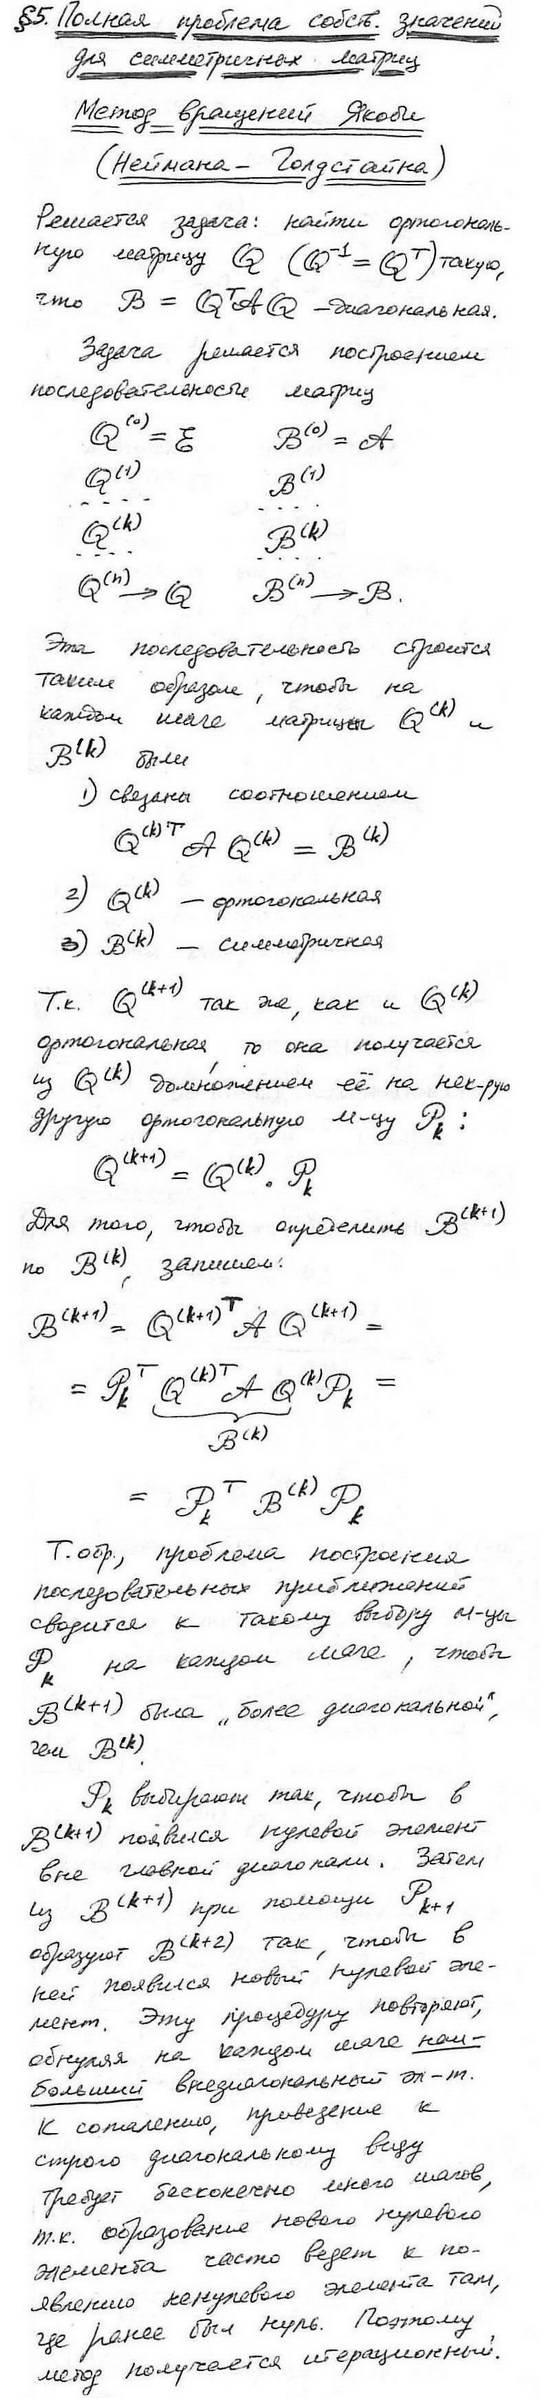 §5. Полная проблема собств. значений
для симметричных матриц
Метод вращений Якоби
(Неймана – Голдстайна)
Решается задача: найти ортогональ-
ную матрицу Q (Q⁻¹ = Qᵀ) такую,
что B = QᵀAQ – диагональная.
Задача решается построением
последовательности матриц
Q⁽⁰⁾ = E B⁽⁰⁾ = A
Q⁽¹⁾ B⁽¹⁾
- - - - - - - -
Q⁽ᵏ⁾ B⁽ᵏ⁾
- - - - - - - -
Q⁽ⁿ⁾ → Q B⁽ⁿ⁾ → B.
Эта последовательность строится
таким образом, чтобы на
каждом шаге матрицы Q⁽ᵏ⁾ и
B⁽ᵏ⁾ были
1) связаны соотношением
Q⁽ᵏ⁾ᵀ A Q⁽ᵏ⁾ = B⁽ᵏ⁾
2) Q⁽ᵏ⁾ – ортогональная
3) B⁽ᵏ⁾ – симметричная
Т.к. Q⁽ᵏ⁺¹⁾ так же, как и Q⁽ᵏ⁾
ортогональная, то она получается
из Q⁽ᵏ⁾ домножением её на нек-рую
другую ортогональную м-цу Pₖ:
Q⁽ᵏ⁺¹⁾ = Q⁽ᵏ⁾ · Pₖ
Для того, чтобы определить B⁽ᵏ⁺¹⁾
по B⁽ᵏ⁾, запишем:
B⁽ᵏ⁺¹⁾ = Q⁽ᵏ⁺¹⁾ᵀ A Q⁽ᵏ⁺¹⁾ =
= Pₖᵀ Q⁽ᵏ⁾ᵀ A Q⁽ᵏ⁾ Pₖ =
B⁽ᵏ⁾
= Pₖᵀ B⁽ᵏ⁾ Pₖ
Т. обр., проблема построения
последовательных приближений
сводится к такому выбору м-цы
Pₖ на каждом шаге, чтобы
B⁽ᵏ⁺¹⁾ была „более диагональной",
чем B⁽ᵏ⁾.
Pₖ выбирают так, чтобы в
B⁽ᵏ⁺¹⁾ появился нулевой элемент
вне главной диагонали. Затем
из B⁽ᵏ⁺¹⁾ при помощи Pₖ₊₁
образуют B⁽ᵏ⁺²⁾ так, чтобы в
ней появился новый нулевой эле-
мент. Эту процедуру повторяют,
обнуляя на каждом шаге наи-
больший внедиагональный эл-т.
К сожалению, приведение к
строго диагональному виду
требует бесконечно много шагов,
т.к. образование нового нулевого
элемента часто ведет к по-
явлению ненулевого элемента там,
где ранее был нуль. Поэтому
метод получается итерационный.